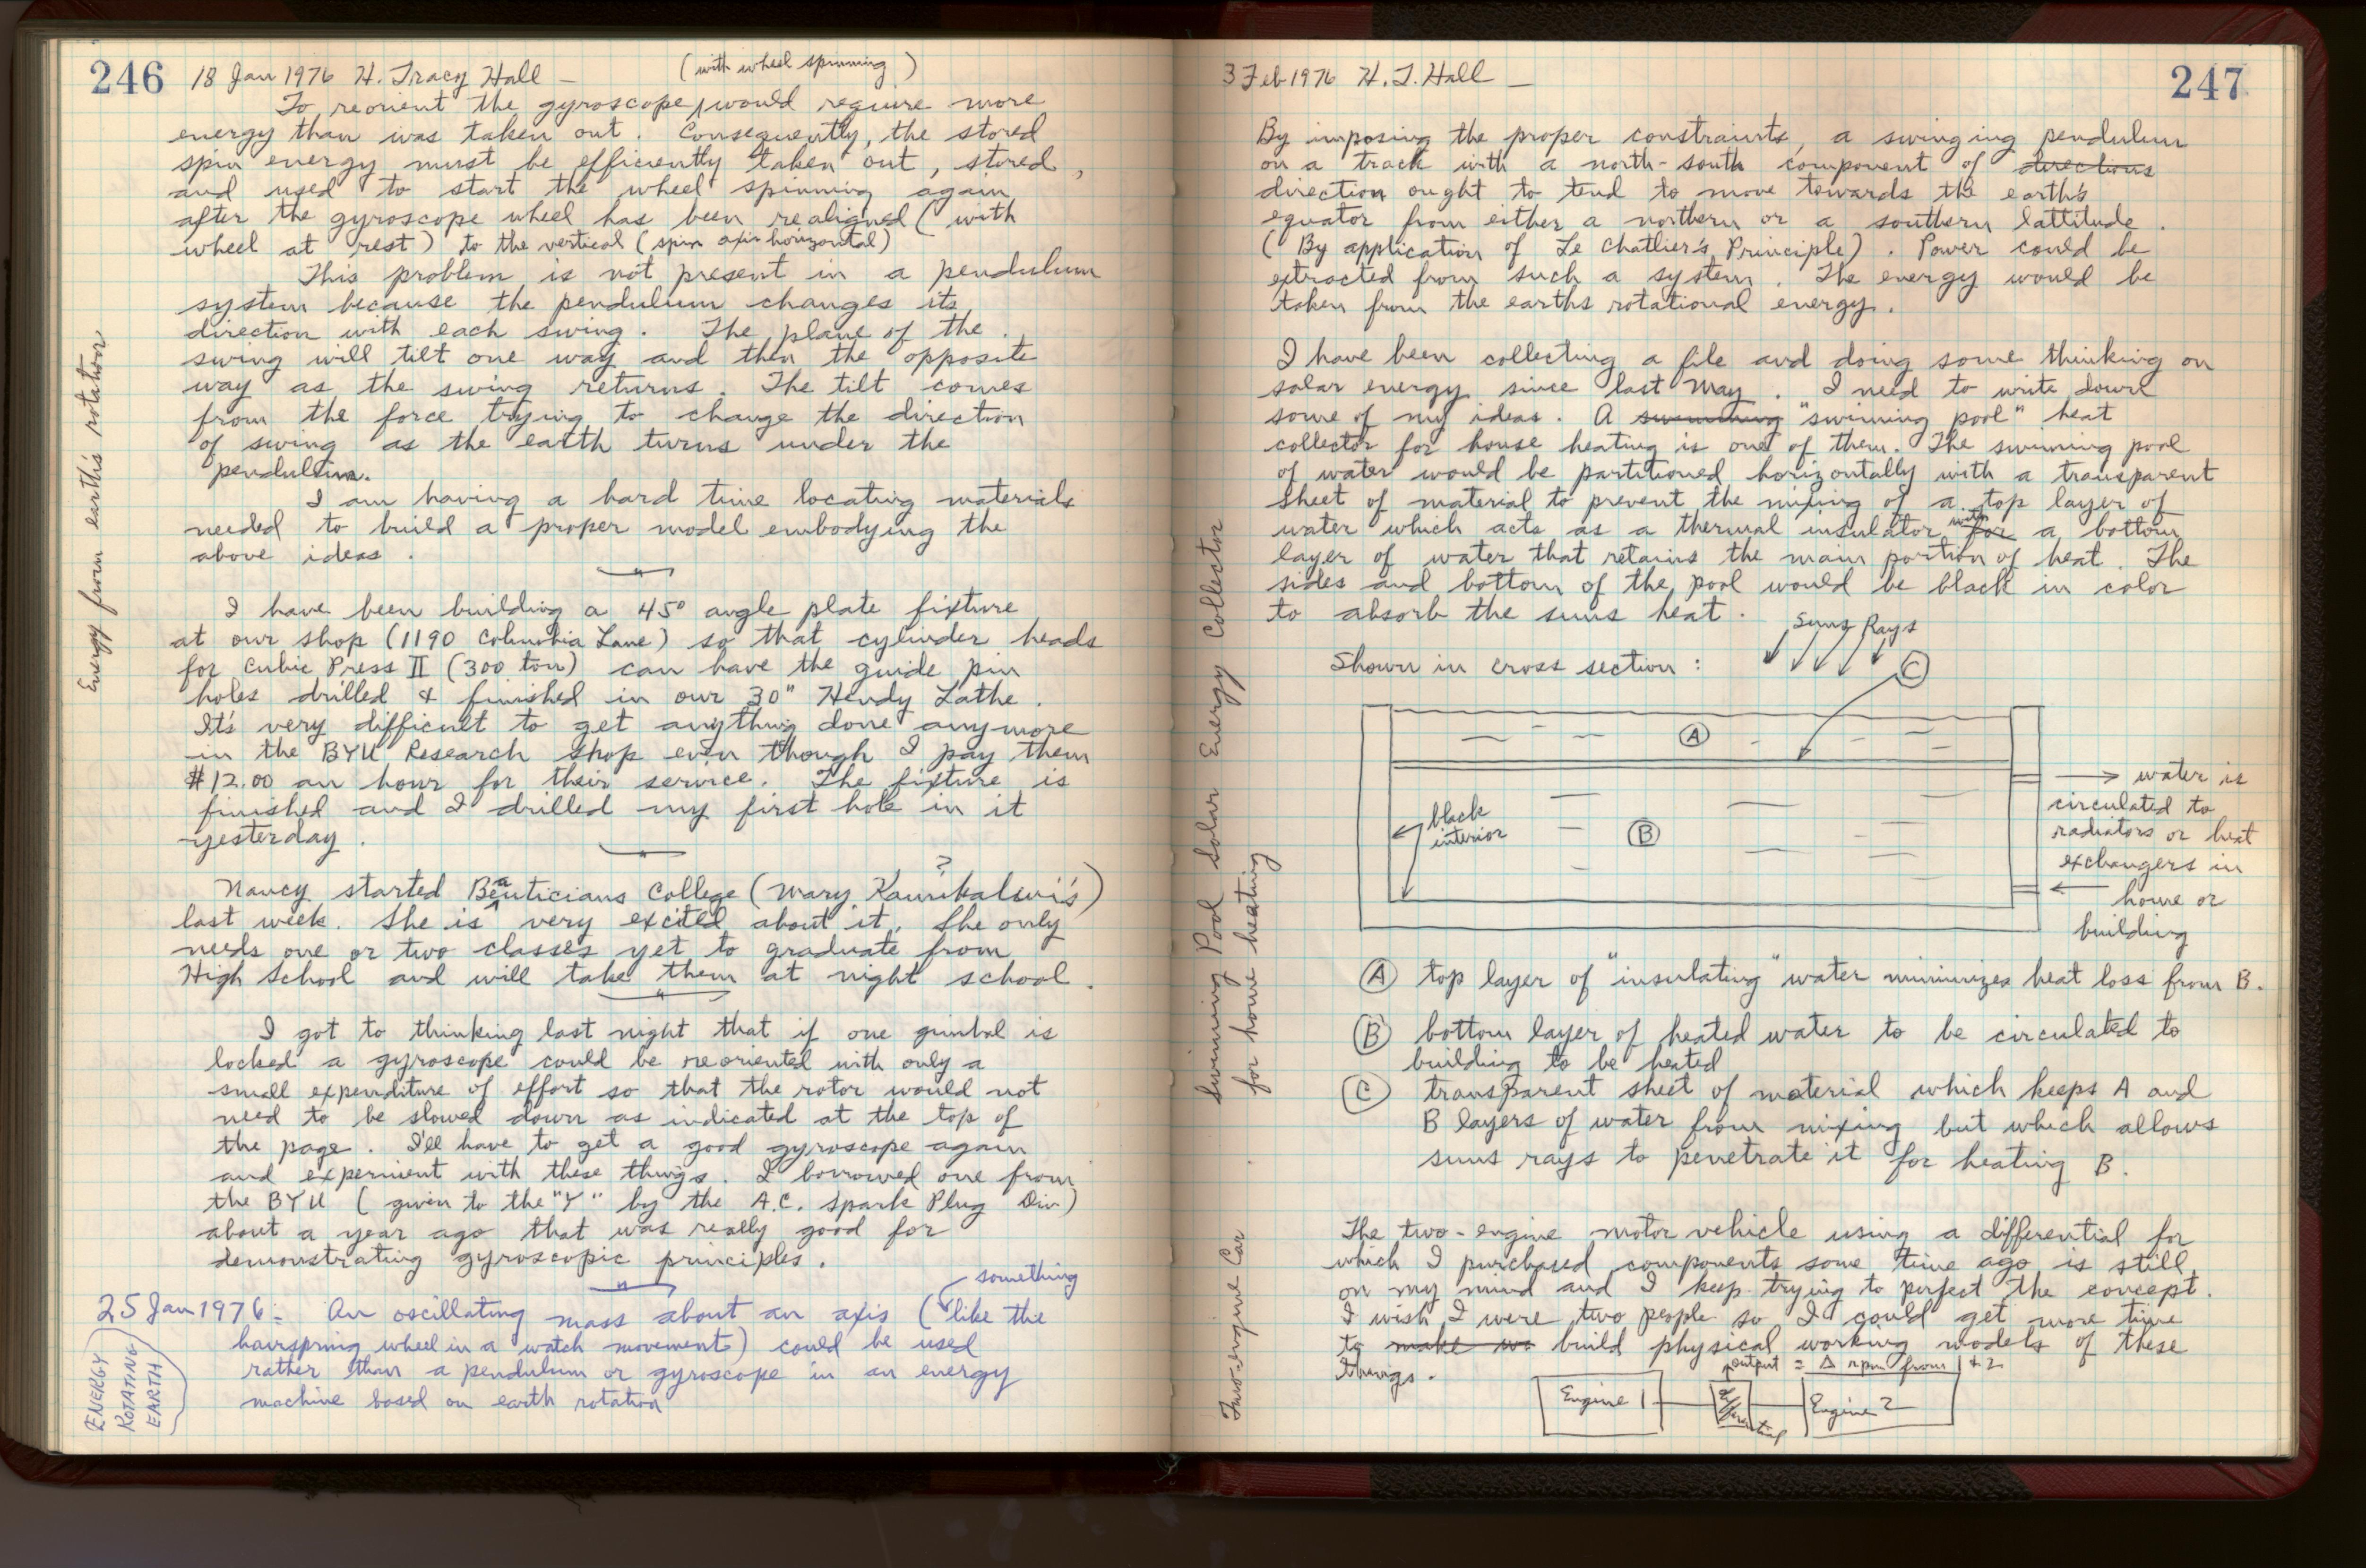 246 18 Jan 1976 H. Tracy Hall — (with wheel spinning)
To reorient the gyroscope, would require more
energy than was taken out. Consequently, the stored
spin energy must be efficiently taken out, stored,
and used to start the wheel spinning again
after the gyroscope wheel has been realigned (with
wheel at rest) to the vertical (spin axis horizontal)
This problem is not present in a pendulum
system because the pendulum changes its
direction with each swing. The plane of the
swing will tilt one way and then the opposite
way as the swing returns. The tilt comes
from the force trying to change the direction
of swing as the earth turns under the
pendulum.
I am having a hard time locating materials
needed to build a proper model embodying the
above ideas.
Energy from earth's rotation
I have been building a 45° angle plate fixture
at our shop (1190 Columbia Lane) so that cylinder heads
for Cubic Press II (300 ton) can have the guide pin
holes drilled & finished in our 30" Hendy Lathe.
It's very difficult to get anything done anymore
in the BYU Research shop even though I pay them
$12.00 an hour for their service. The fixture is
finished and I drilled my first hole in it
yesterday.
?
Nancy started Beauticians College (Mary Kawakalwi's)
last week. She is very excited about it. She only
needs one or two classes yet to graduate from
High School and will take them at night school.
I got to thinking last night that if one gimbal is
locked a gyroscope could be reoriented with only a
small expenditure of effort so that the rotor would not
need to be slowed down as indicated at the top of
the page. I'll have to get a good gyroscope again
and experiment with these things. I borrowed one from
the BYU (given to the "Y" by the A.C. Spark Plug Div)
about a year ago that was really good for
demonstrating gyroscopic principles.
something
25 Jan 1976: An oscillating mass about an axis (like the
hairspring wheel in a watch movement) could be used
rather than a pendulum or gyroscope in an energy
machine based on earth rotation
ENERGY
ROTATING
EARTH
3 Feb 1976 H. T. Hall — 247
By imposing the proper constraints, a swinging pendulum
on a track with a north-south component of directions
direction ought to tend to move towards the earth's
equator from either a northern or a southern lattitude.
(By application of Le Chatlier's Principle). Power could be
extracted from such a system. The energy would be
taken from the earths rotational energy.
I have been collecting a file and doing some thinking on
solar energy since last May. I need to write down
some of my ideas. A swimming "swimming pool" heat
collector for house heating is one of them. The swimming pool
of water would be partitioned horizontally with a transparent
sheet of material to prevent the mixing of a top layer of
water which acts as a thermal insulator for with a bottom
layer of water that retains the main portion of heat. The
sides and bottom of the pool would be black in color
to absorb the suns heat.
Swimming Pool Solar Energy Collector
for home heating
Suns Rays
Shown in cross section:
C
A
black
interior
B
water is
circulated to
radiators or heat
exchangers in
home or
building
A top layer of "insulating" water minimizes heat loss from B.
B bottom layer of heated water to be circulated to
building to be heated
C transparent sheet of material which keeps A and
B layers of water from mixing but which allows
suns rays to penetrate it for heating B.
Two-engine Car
The two-engine motor vehicle using a differential for
which I purchased components some time ago is still
on my mind and I keep trying to perfect the concept.
I wish I were two people so I could get more time
to make wo build physical working models of these
things.
output = Δ rpm from 1 & 2
Engine 1
differential
Engine 2